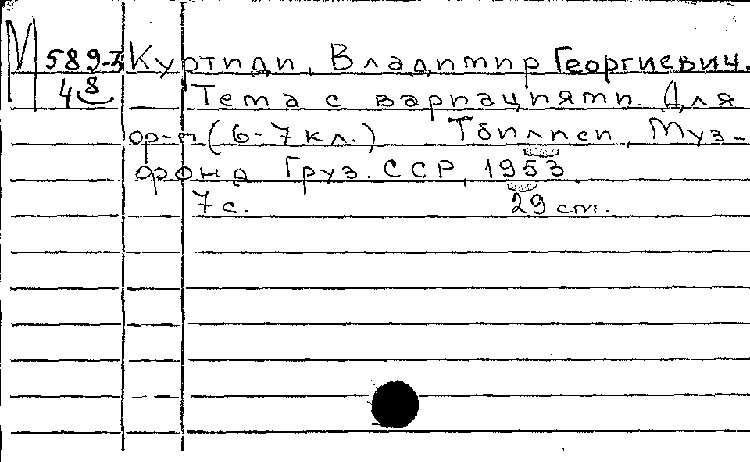 М 589-3 Куртиди, Владимир Георгиевич.
48 Тема с вариациями. Для
ф-п (6-7 кл.) Тбилиси, Муз-
фонд Груз. ССР, 1953.
7 с. 29 cm.